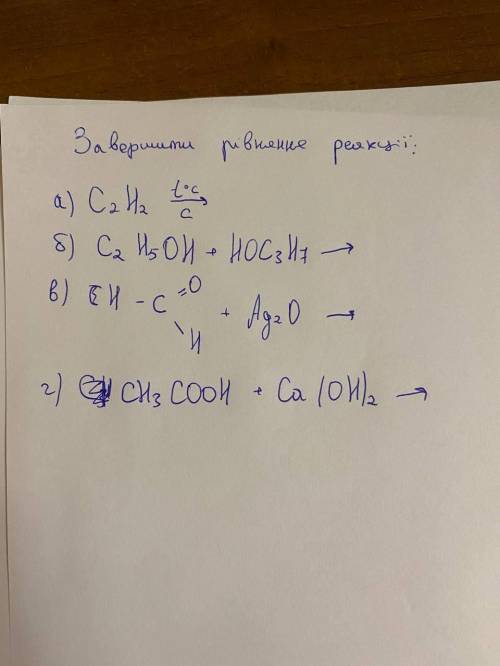 Завершити рівняннє реакції:
а) C₂H₂ t°c→ c
б) C₂H₅OH + HOC₃H₇ →
в) CH - C =O \ H + Ag₂O →
г) CH₃COOH + Ca(OH)₂ →